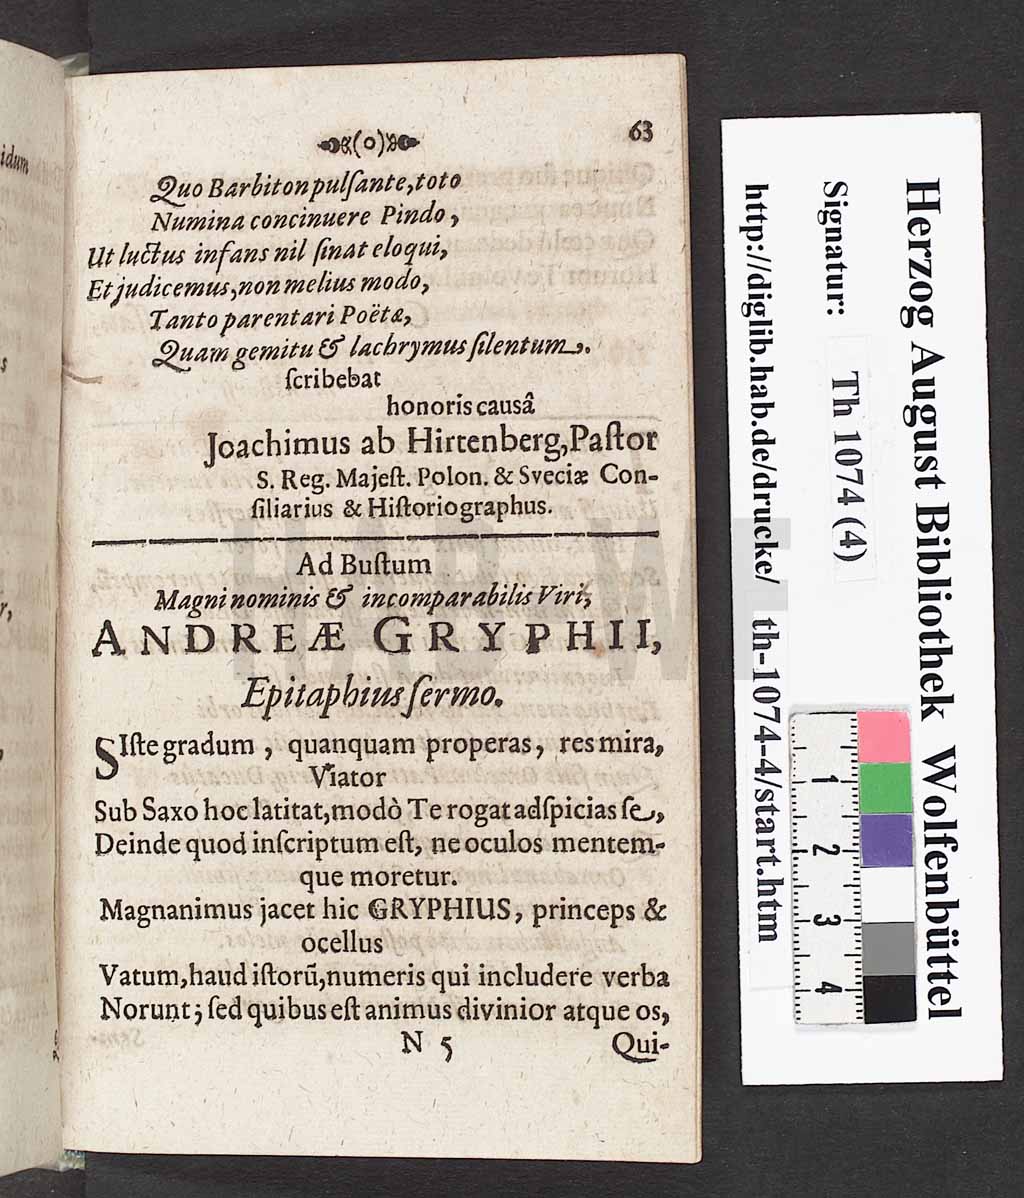 idum
s
r,
63
Quo Barbiton pulſante, toto
Numina concinuere Pindo,
Ut luctus infans nil ſinat eloqui,
Et judicemus, non melius modo,
Tanto parentari Poëtæ,
Quam gemitu & lachrymus ſilentum.
ſcribebat
honoris causâ
Joachimus ab Hirtenberg, Paſtor
S. Reg. Majeſt. Polon. & Sveciæ Con-
ſiliarius & Hiſtoriographus.
Ad Buſtum
Magni nominis & incomparabilis Viri,
ANDREÆ GRYPHII,
Epitaphius ſermo.
SIſte gradum, quanquam properas, res mira,
Viator
Sub Saxo hoc latitat, modò Te rogat adſpicias ſe,
Deinde quod inſcriptum eſt, ne oculos mentem-
que moretur.
Magnanimus jacet hic GRYPHIUS, princeps &
ocellus
Vatum, haud iſtorũ, numeris qui includere verba
Norunt; ſed quibus eſt animus divinior atque os,
N 5
Qui-
Herzog August Bibliothek Wolfenbüttel
Signatur: Th 1074 (4)
http://diglib.hab.de/drucke/ th-1074-4/start.htm
1
2
3
4